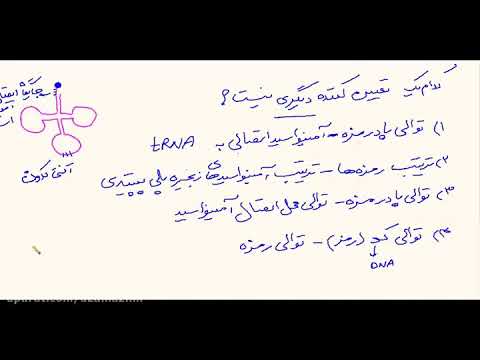 کدام یک تعیین کننده دیگری نیست؟
۱) توالی پادرمزه - آمینواسید اتصالی به tRNA
۲) ترتیب رمزه‌ها - ترتیب آمینواسیدهای زنجیره پلی پپتیدی
۳) توالی پادرمزه - توالی محل اتصال آمینواسید
۴) توالی کد (رمز) - توالی رمزه
DNA
جایگاه اتصال
آنتی کدون